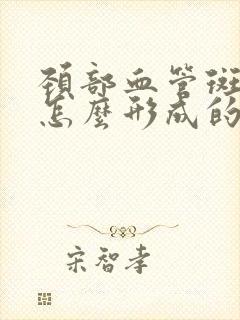 頚部血管斑
怎麼形成的
宋智孝